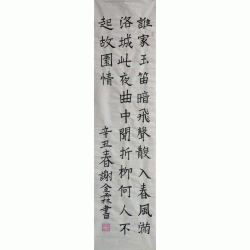 誰家玉笛暗飛聲散入春風滿
洛城此夜曲中聞折柳何人不
起故園情
辛丑春謝金霖書